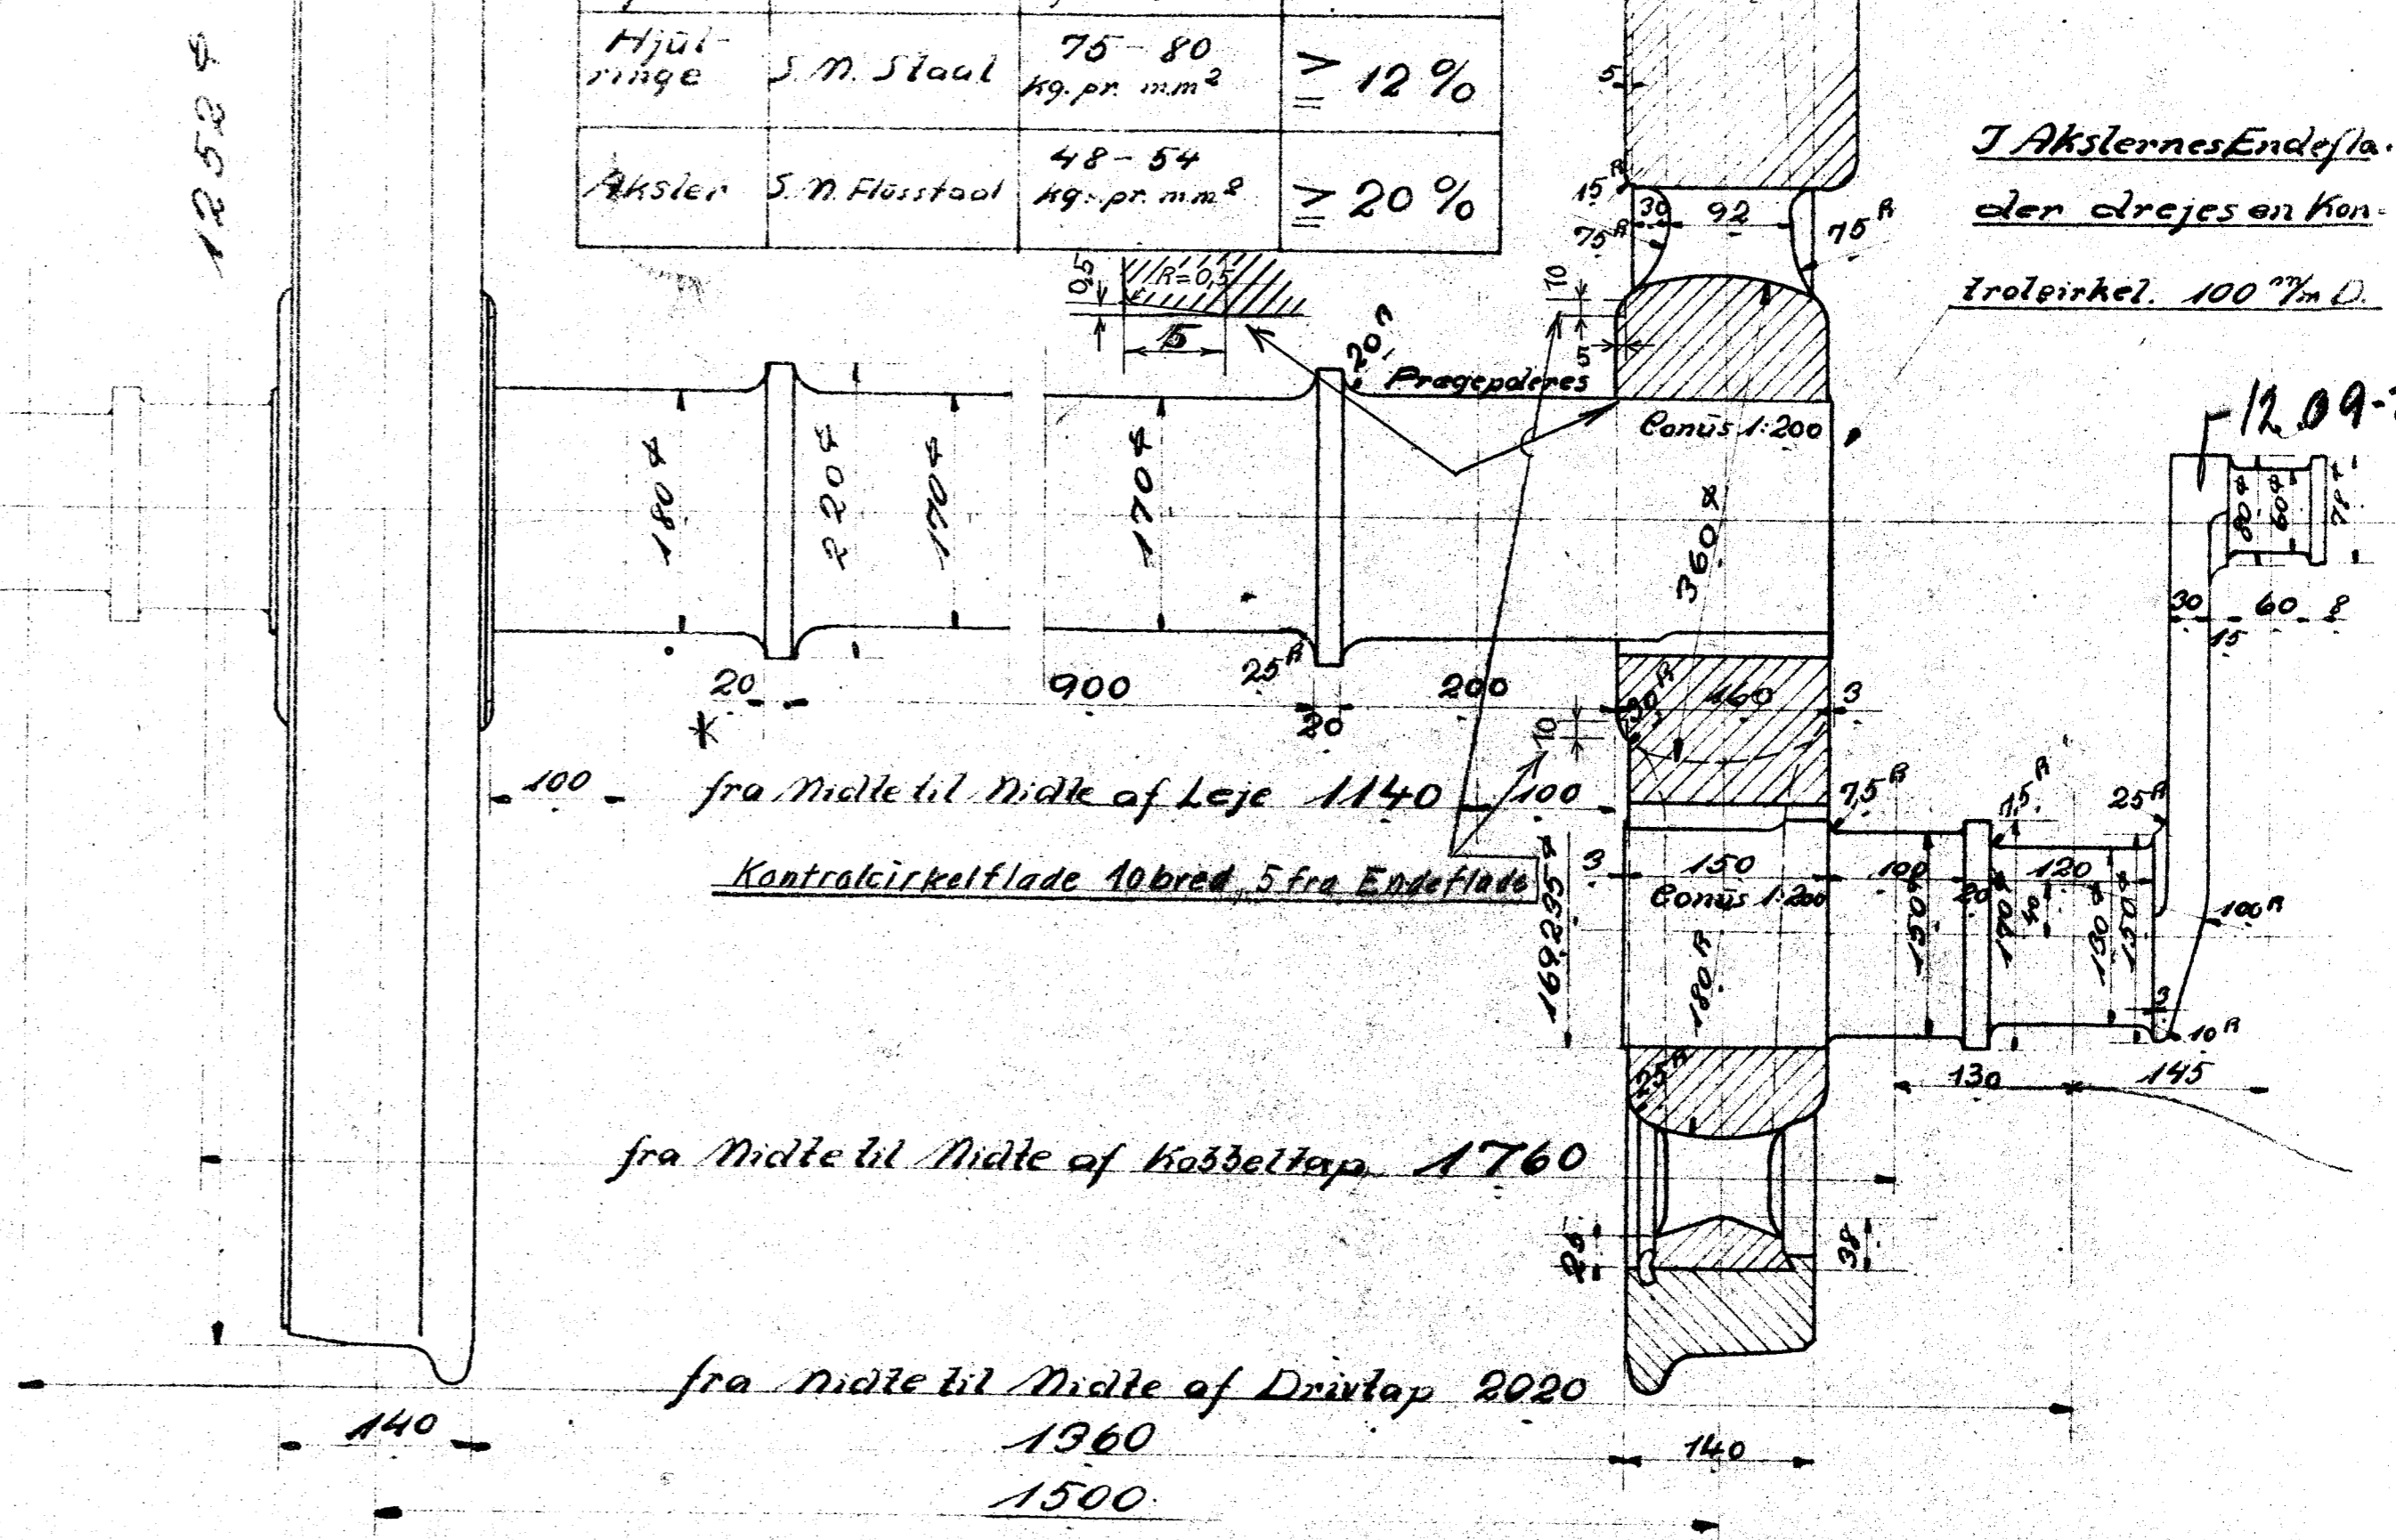 Hjül-
ringe
S.M. Staal
75 - 80
kg. pr. m.m²
≧ 12 %
Aksler
S.M. Flüsstaal
48 - 54
kg. pr. m.m²
≧ 20 %
I Akslernes Endefla-
der drejes en Kon-
trolcirkel. 100 m/m D.
0,5
R=0,5
15
5
15 R
30
92
75 R
75 R
10
5
20 R
Prægepoleres
Conüs 1:200
180
220
170
170
360
80
60
78
30
60
8
15
20
900
25 R
20
200
30 R
160
3
10
100
fra Midte til Midte af Leje 1140
100
7,5 R
7,5 R
25 R
Kontrolcirkelflade 10 bred, 5 fra Endeflade
3
150
Conüs 1:200
100
20
120
169,295
180 R
150
160
130
150
100 R
3
10 R
25 R
130
145
fra Midte til Midte af Kobbeltap 1760
25
38
fra Midte til Midte af Drivtap 2020
140
1360
140
1500